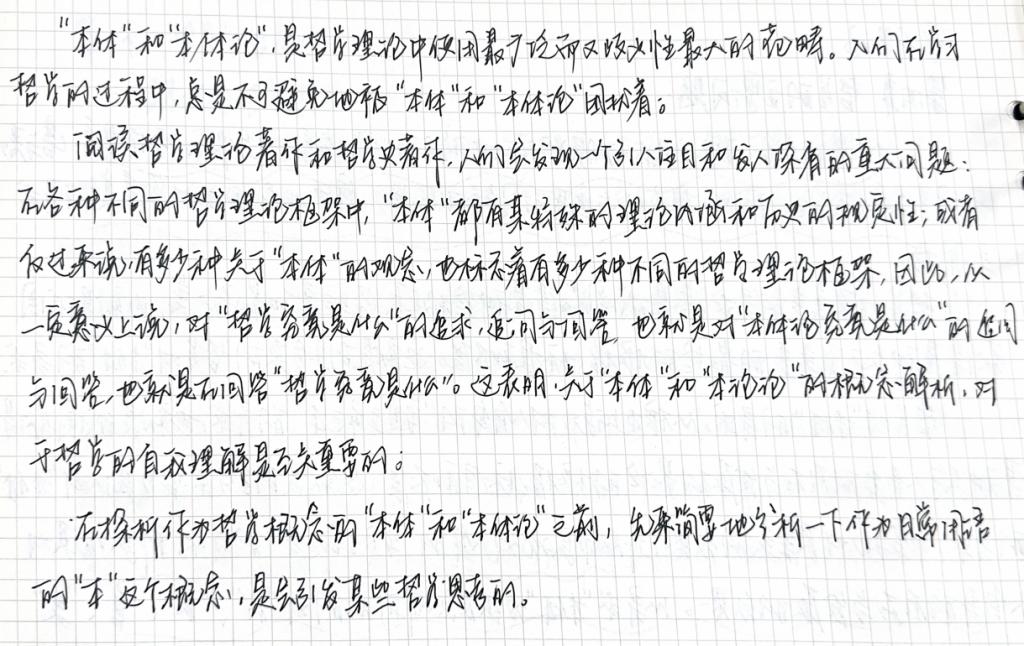 "本体"和"本体论",是哲学理论中使用最广泛而又歧义性最大的范畴。人们在学习
哲学的过程中,总是不可避免地被"本体"和"本体论"困扰着。
阅读哲学理论著作和哲学史著作,人们会发现一个引人注目和发人深省的重大问题:
在各种不同的哲学理论框架中,"本体"都有某特殊的理论内涵和历史的规定性;或者
反过来说,有多少种关于"本体"的观念,也标志着有多少种不同的哲学理论框架,因此,从
一定意义上说,对"哲学究竟是什么"的追求,追问与回答,也就是对"本体论究竟是什么"的追问
与回答,也就是在回答"哲学究竟是什么"。这表明,关于"本体"和"本论论"的概念解析,对
于哲学的自我理解是至关重要的。
在探析作为哲学概念的"本体"和"本体论"之前,先来简要地分析一下作为日常用语
的"本"这个概念,是会引发某些哲学思考的。